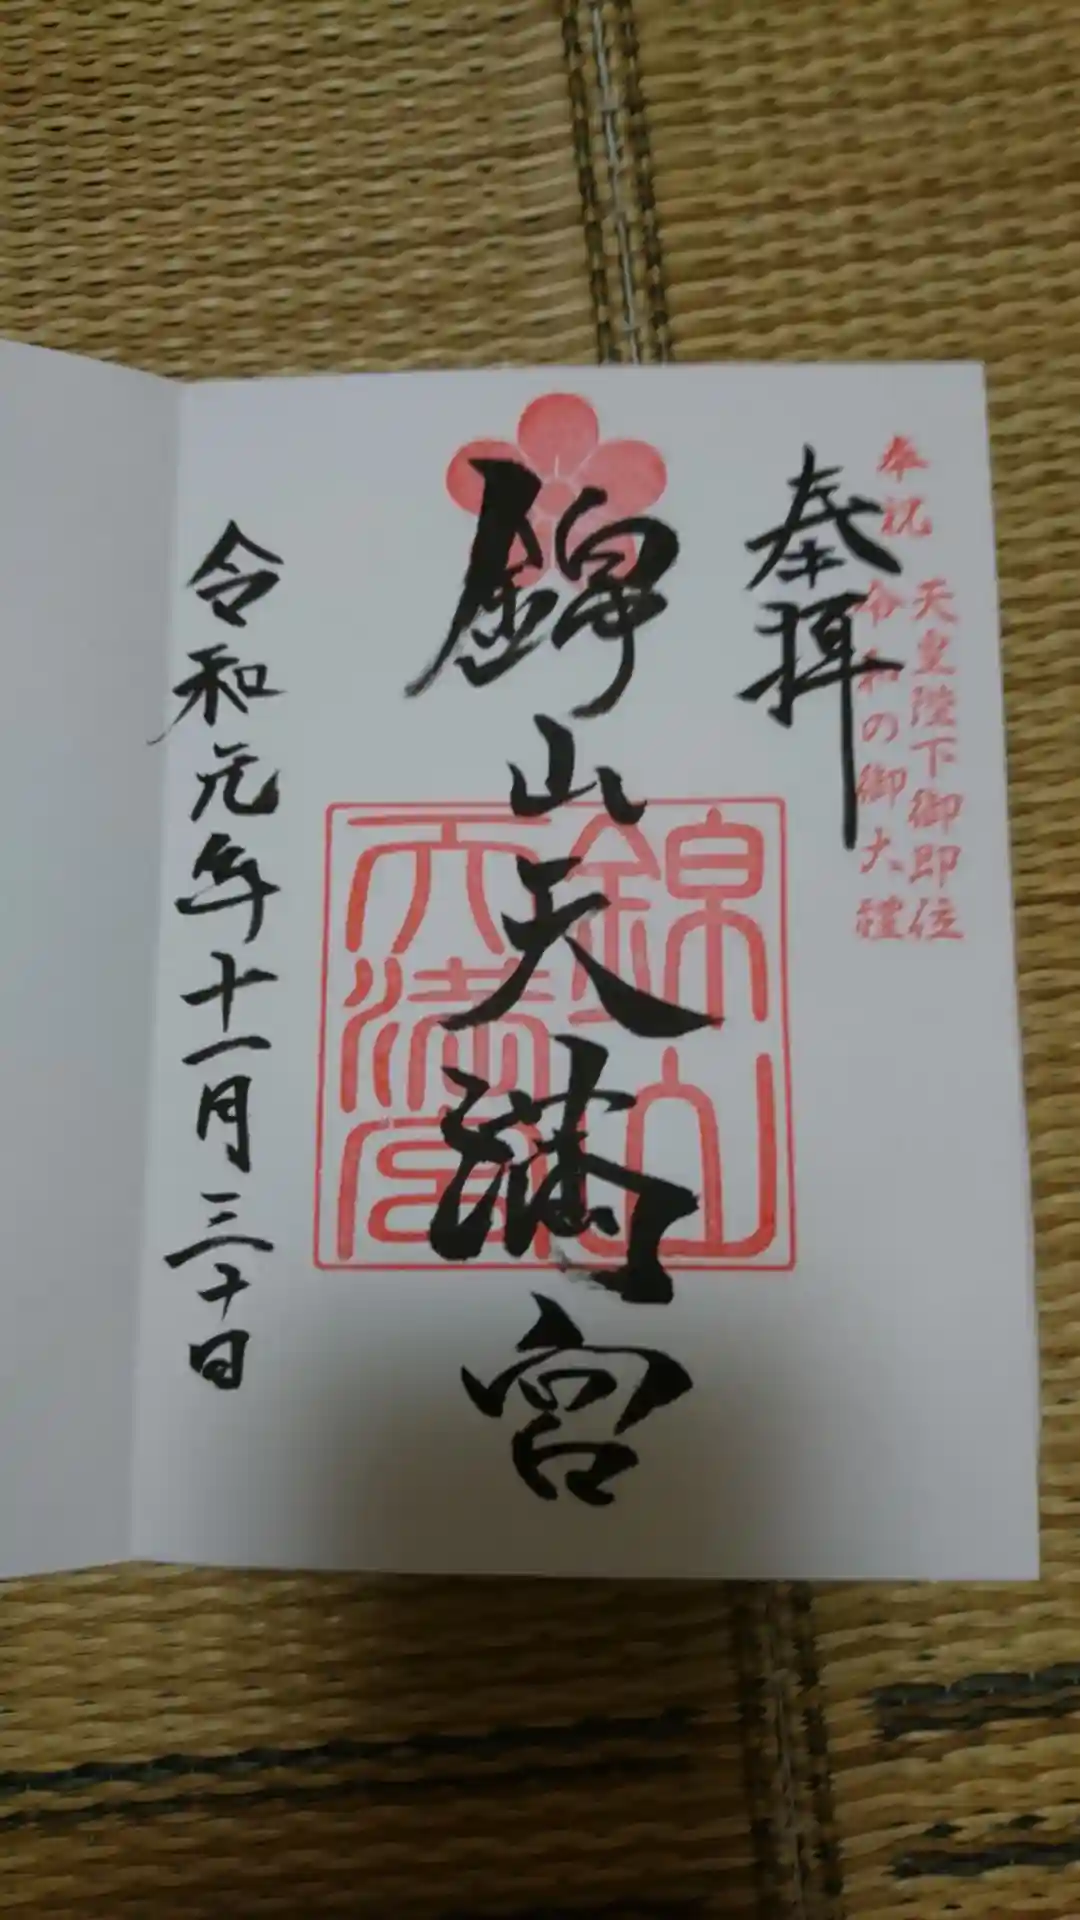 奉祝
天皇陛下御即位
令和の御大禮
奉拝
錦山天満宮
錦山
天満宮
令和元年十一月三十日